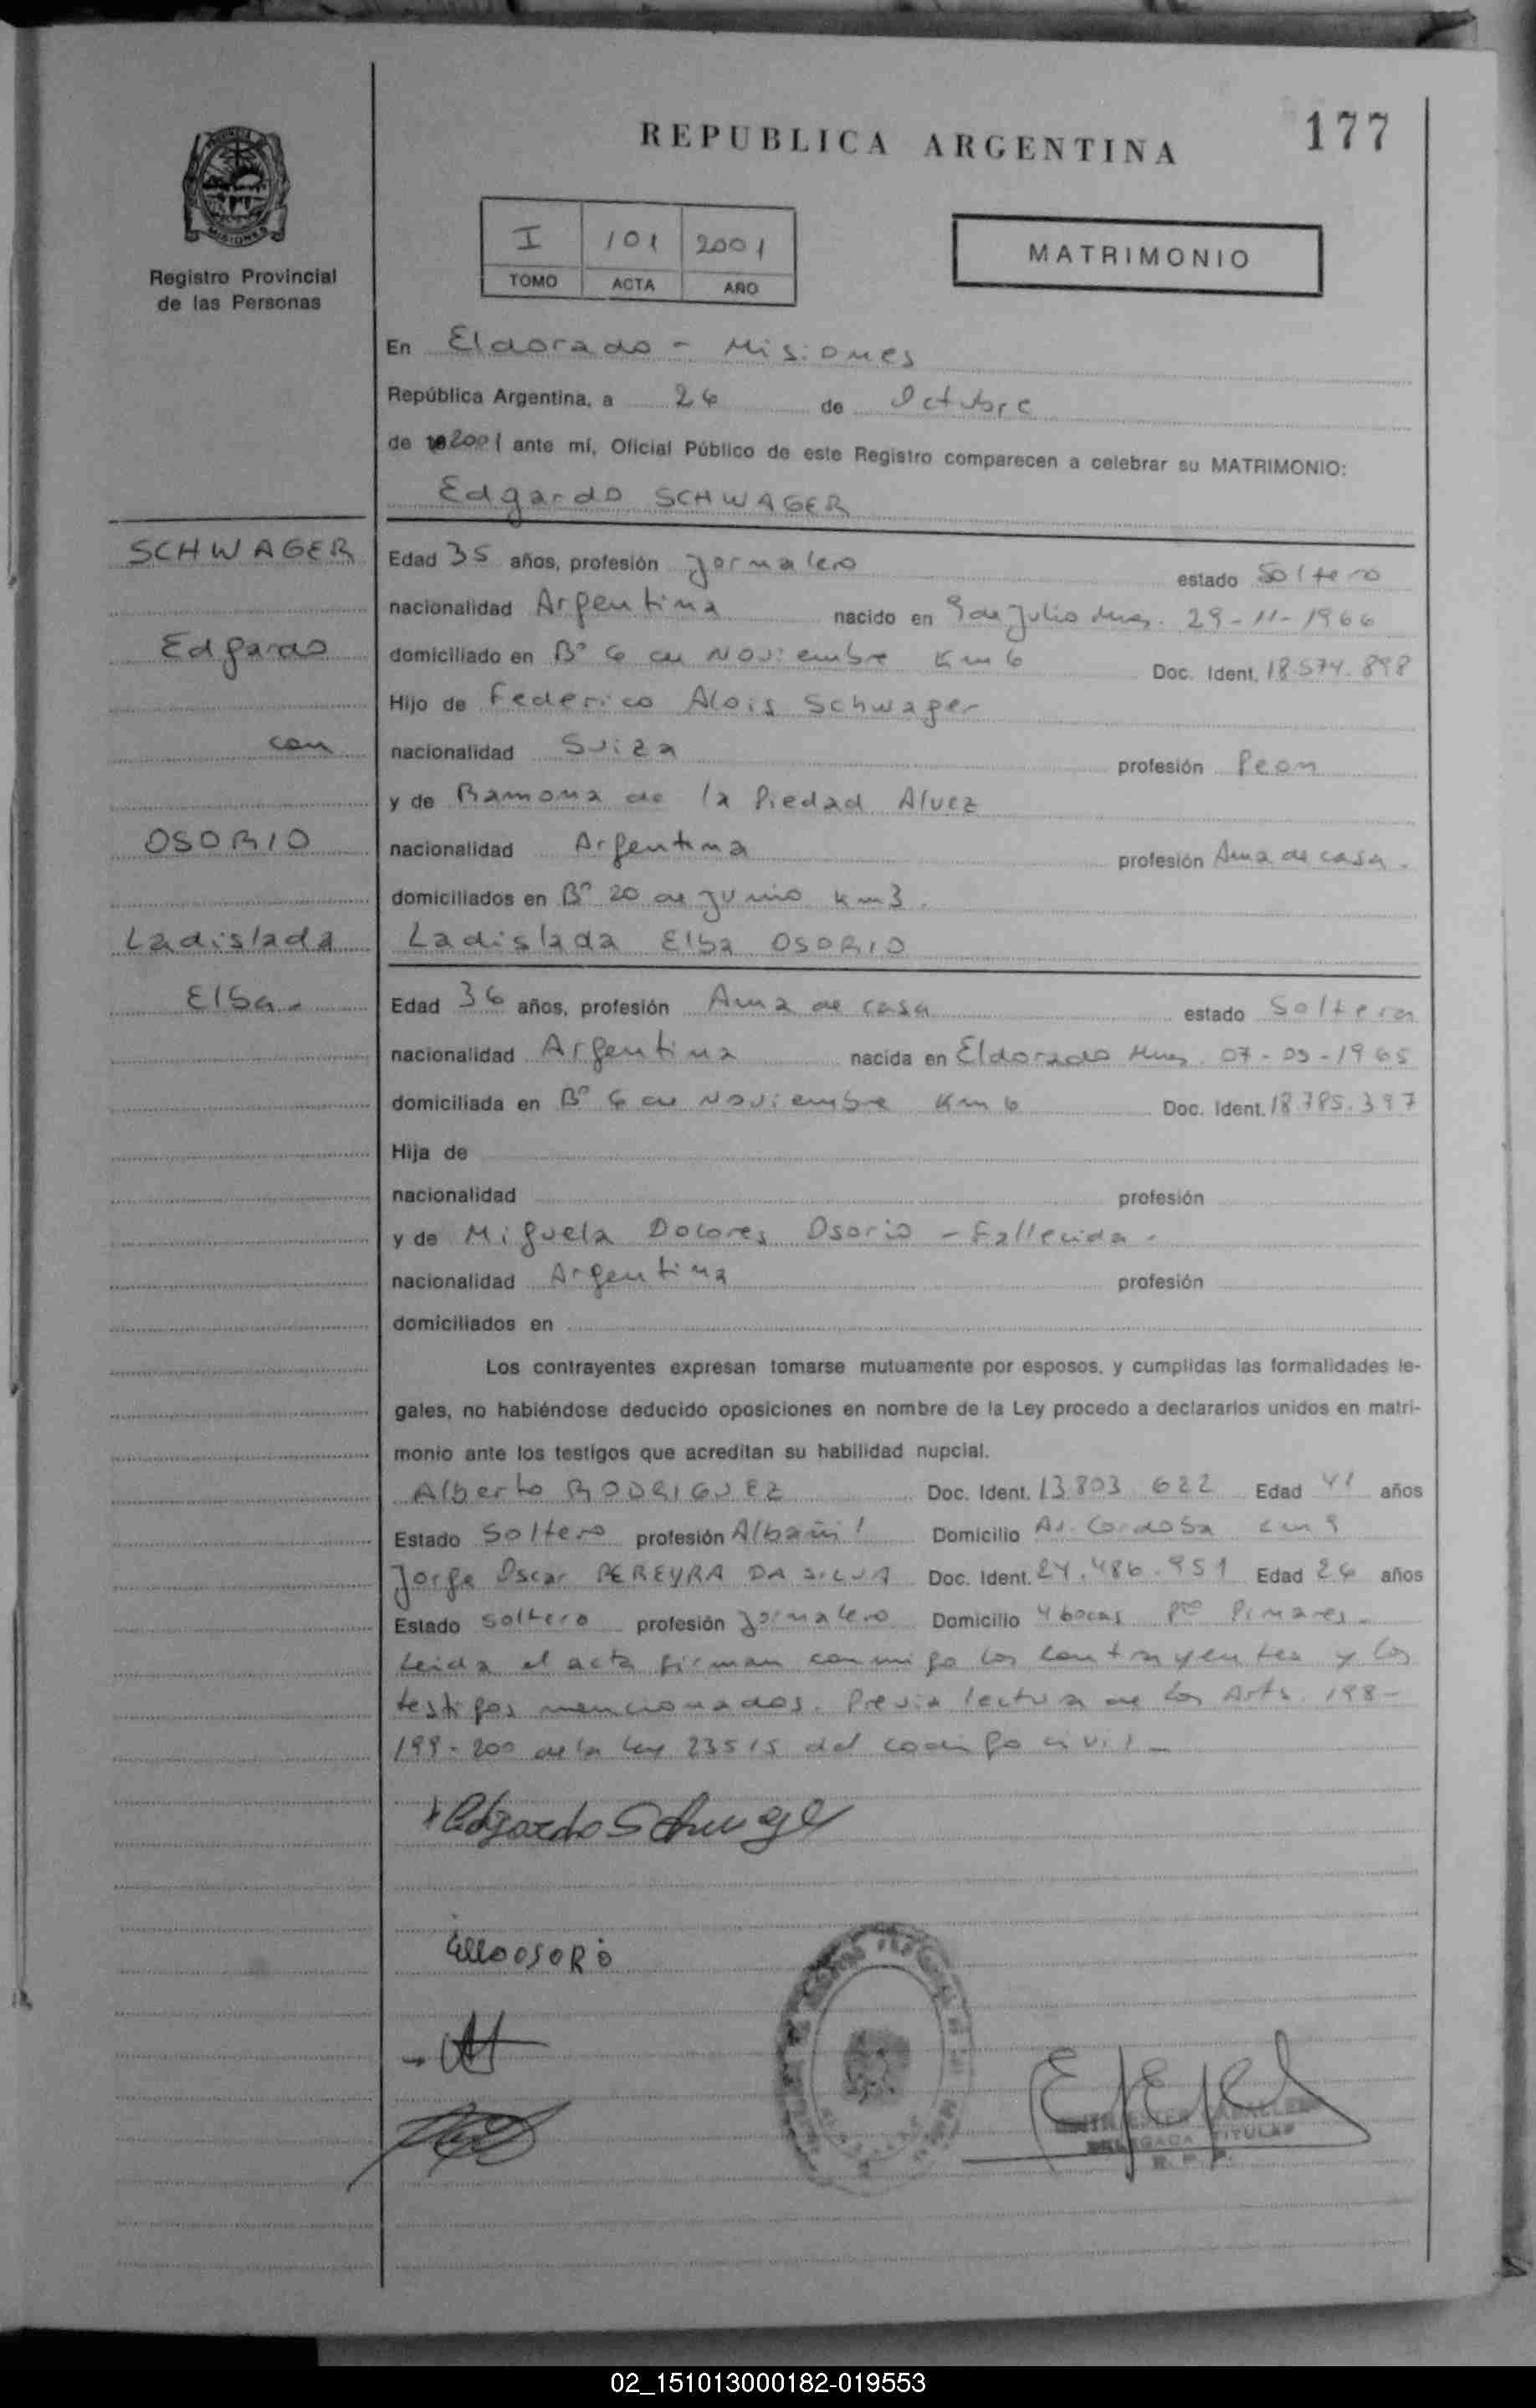 177
REPUBLICA ARGENTINA
PROVINCIA
MISIONES
Registro Provincial
de las Personas
I 101 2001
TOMO ACTA AÑO
MATRIMONIO
En Eldorado - Misiones
República Argentina, a 26 de Octubre
de 2001 ante mí, Oficial Público de este Registro comparecen a celebrar su MATRIMONIO:
Edgardo SCHWAGER
SCHWAGER
Edgardo
con
OSORIO
Ladislada
Elba.
Edad 35 años, profesión Jornalero estado Soltero
nacionalidad Argentina nacido en 9 de Julio Mnes. 29-11-1966
domiciliado en Bº 6 de Noviembre Km 6 Doc. Ident. 18.574.898
Hijo de Federico Alois Schwager
nacionalidad Suiza profesión Peon
y de Ramona de la Piedad Alvez
nacionalidad Argentina profesión Ama de casa.
domiciliados en Bº 20 de Junio Km 3.
Ladislada Elba OSORIO
Edad 36 años, profesión Ama de casa estado Soltera
nacionalidad Argentina nacida en Eldorado Mnes. 07-09-1965
domiciliada en Bº 6 de Noviembre Km 6 Doc. Ident. 18.785.397
Hija de
nacionalidad profesión
y de Miguela Dolores Osorio - Fallecida.
nacionalidad Argentina profesión
domiciliados en
Los contrayentes expresan tomarse mutuamente por esposos, y cumplidas las formalidades le-
gales, no habiéndose deducido oposiciones en nombre de la Ley procedo a declararlos unidos en matri-
monio ante los testigos que acreditan su habilidad nupcial.
Alberto RODRIGUEZ Doc. Ident. 13.803.622 Edad 41 años
Estado Soltero profesión Albañil Domicilio Av. Cordoba Km 9
Jorge Oscar PEREYRA DA SILVA Doc. Ident. 24.486.951 Edad 26 años
Estado soltero profesión Jornalero Domicilio 4 bocas Pto Pinares.
Leida el acta firman conmigo los contrayentes y los
testigos mencionados. Previa lectura de los Arts. 198-
199-200 de la Ley 23515 del codigo civil.
Edgardo Schwager
OSORIO
ESTER
DELEGADA TITULAR
R. P. P.
02_151013000182-019553